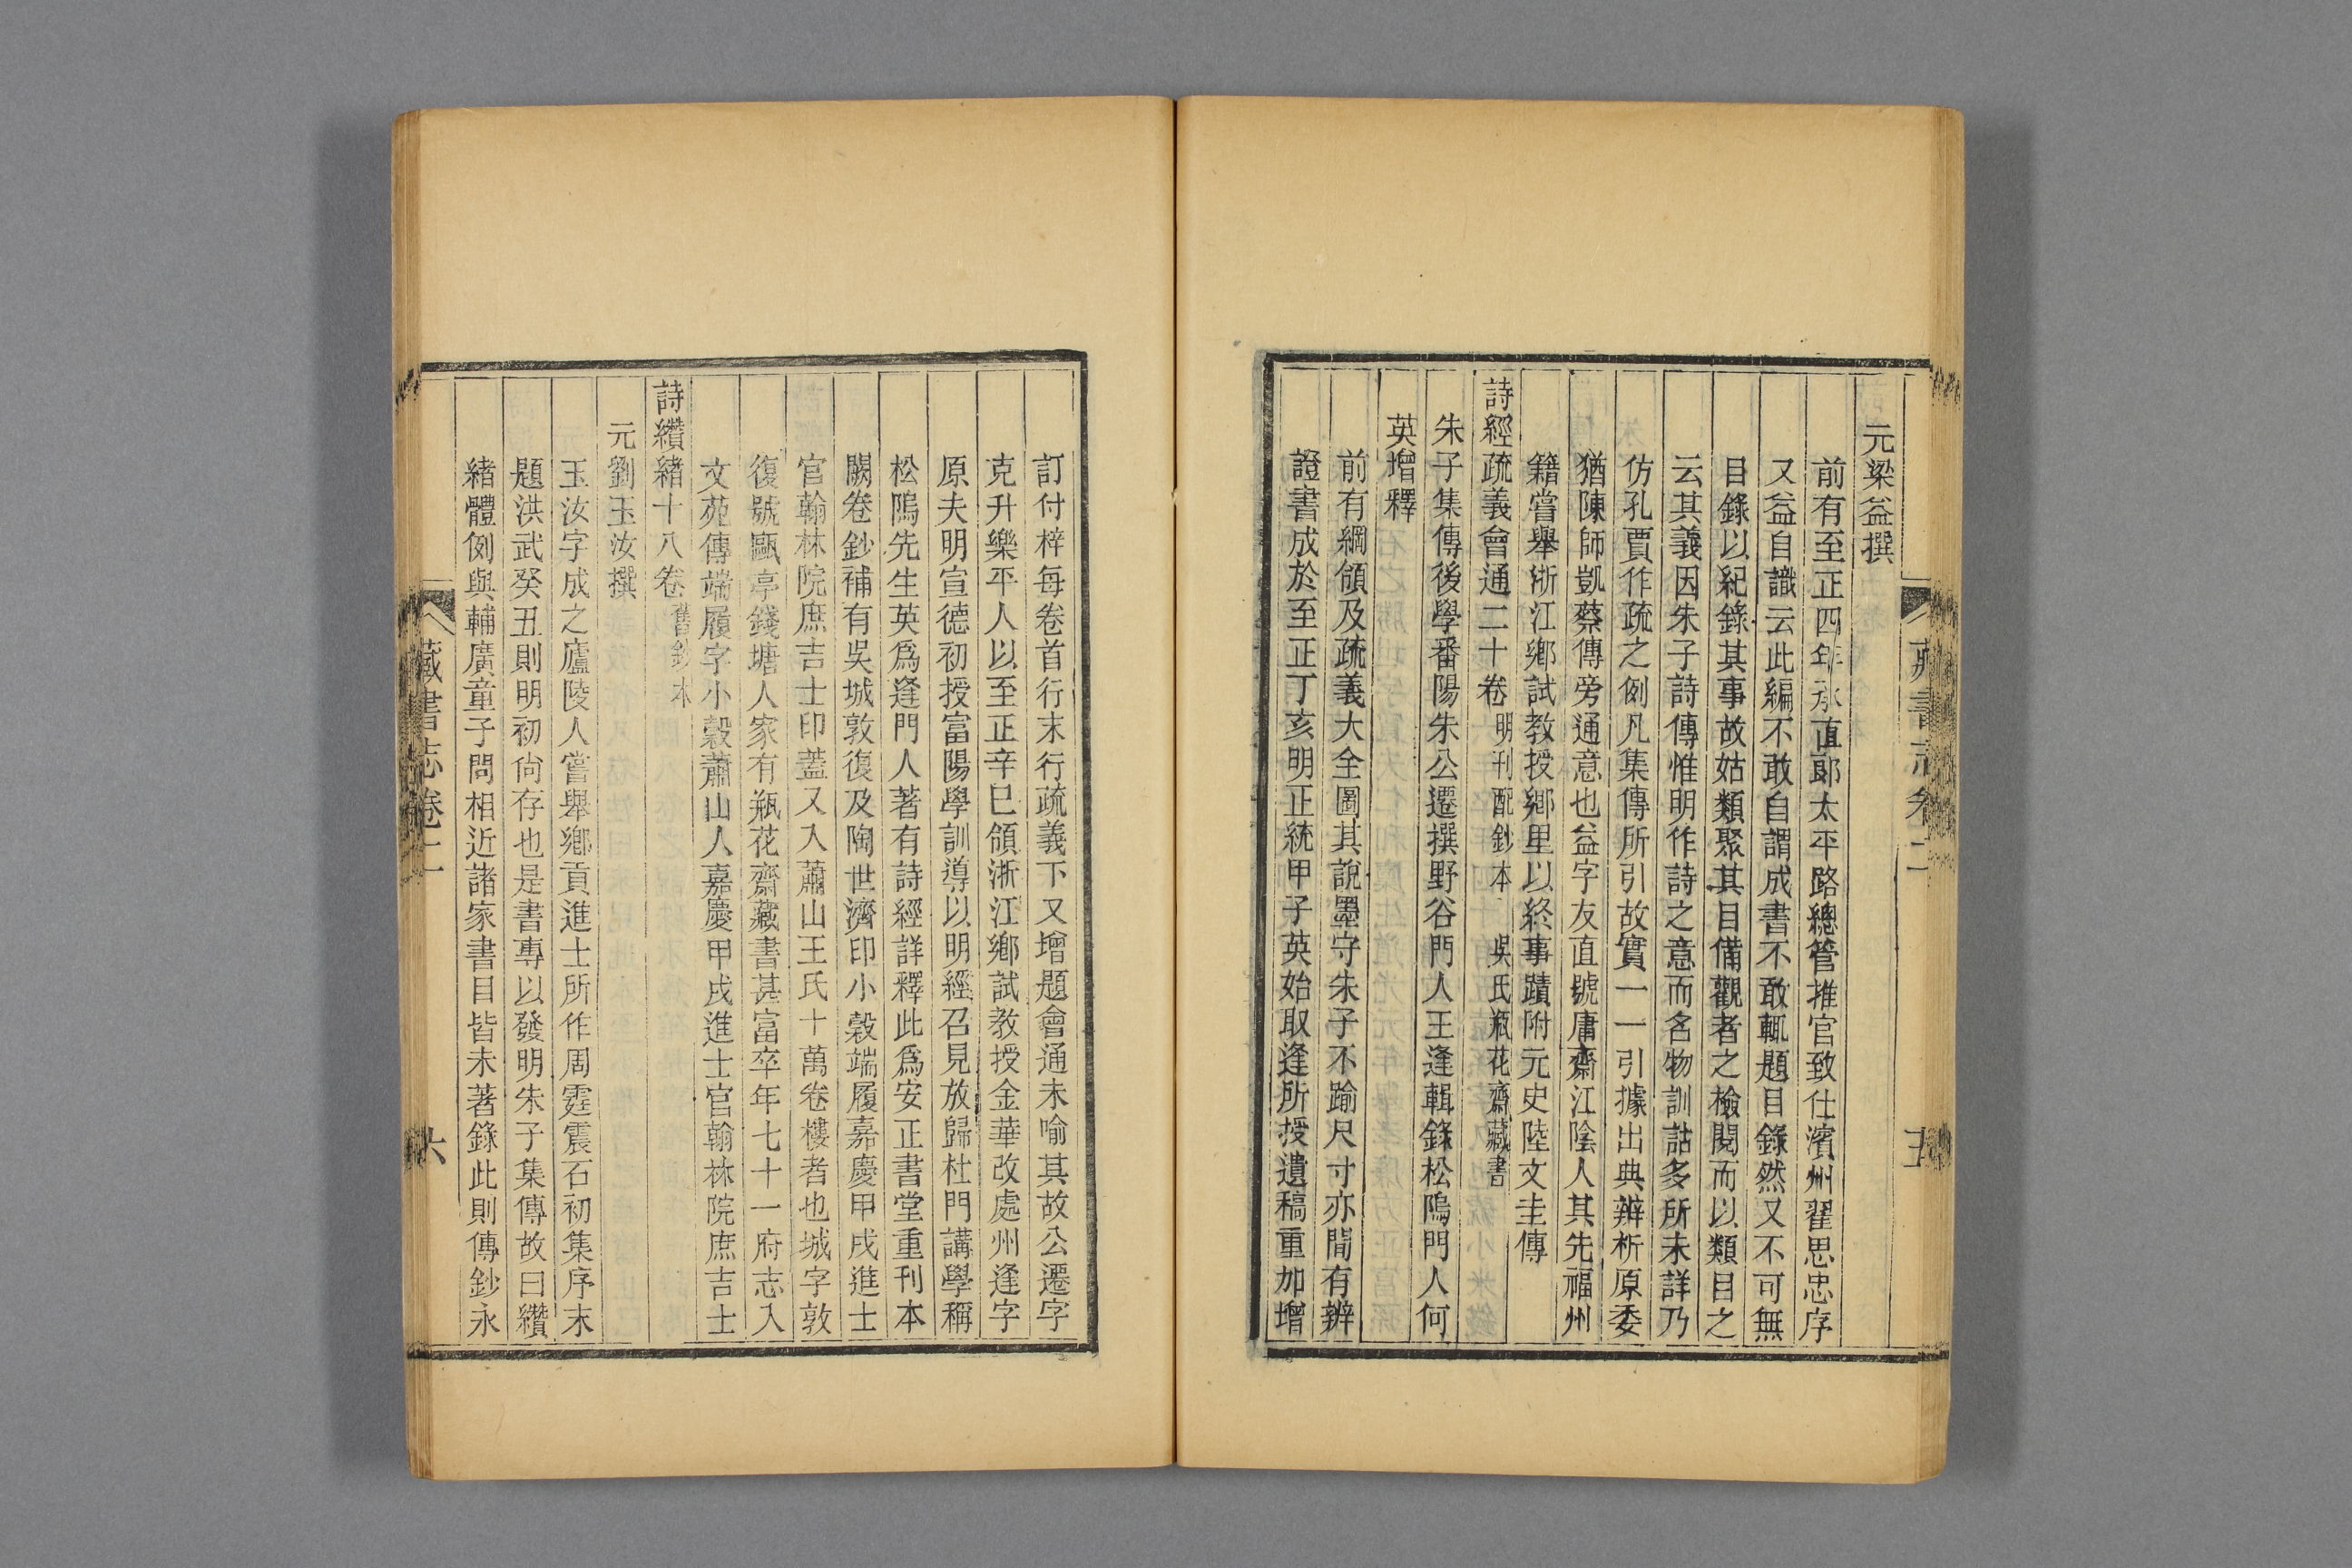 藏書志卷二
五
元梁益撰
前有至正四年承直郎太平路總管推官致仕濱州翟思忠序
又益自識云此編不敢自謂成書不敢輒題目錄然又不可無
目錄以紀錄其事故姑類聚其目備觀者之檢閱而以類目之
云其義因朱子詩傳惟明作詩之意而名物訓詁多所未詳乃
仿孔賈作疏之例凡集傳所引故實一一引據出典辨析原委
猶陳師凱蔡傳旁通意也益字友直號庸齋江陰人其先福州
籍嘗舉浙江鄉試教授鄉里以終事蹟附元史陸文圭傳
詩經疏義會通二十卷 明刊配鈔本 吳氏瓶花齋藏書
朱子集傳後學番陽朱公遷撰野谷門人王逢輯錄松隖門人何
英增釋
前有綱領及疏義大全圖其說墨守朱子不踰尺寸亦間有辨
證書成於至正丁亥明正統甲子英始取逢所授遺稿重加增
訂付梓每卷首行末行疏義下又增題會通未喻其故公遷字
克升樂平人以至正辛巳領浙江鄉試教授金華改處州逢字
原夫明宣德初授富陽學訓導以明經召見放歸杜門講學稱
松隖先生英爲逢門人著有詩經詳釋此爲安正書堂重刊本
闕卷鈔補有吳城敦復及陶世濟印小穀端履嘉慶甲戌進士
官翰林院庶吉士印蓋又入蕭山王氏十萬卷樓者也城字敦
復號甌亭錢塘人家有瓶花齋藏書甚富卒年七十一府志入
文苑傳端履字小穀蕭山人嘉慶甲戌進士官翰林院庶吉士
詩纘緒十八卷 舊鈔本
元劉玉汝撰
玉汝字成之廬陵人嘗舉鄉貢進士所作周霆震石初集序末
題洪武癸丑則明初尙存也是書專以發明朱子集傳故曰纘
緒體例與輔廣童子問相近諸家書目皆未著錄此則傳鈔永
藏書志卷二
六